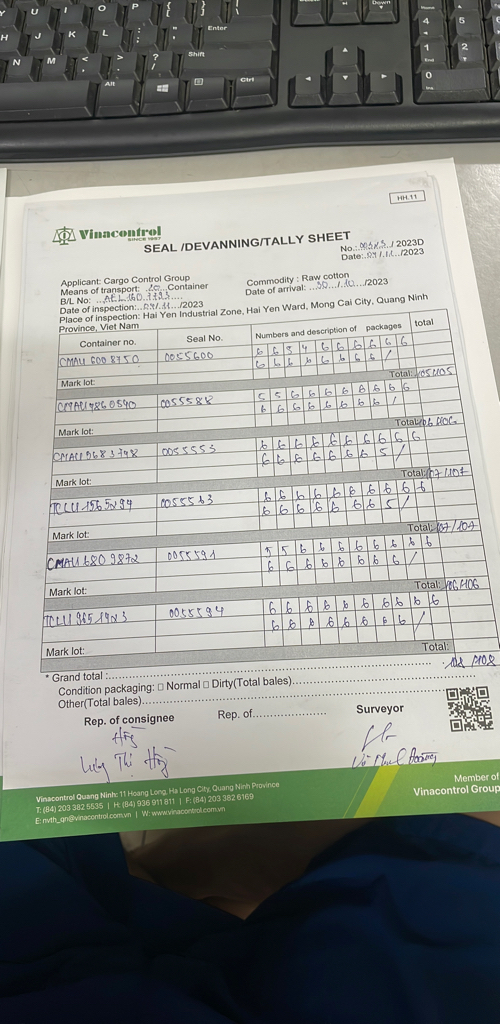 Y U I O P { }
[ ]
Enter
H J K L : "
; '
N M < > ? Shift
, . /
Alt Ctrl
Down
Home
4 5
1 2
End
0
Ins
HH.11
Vinacontrol
SINCE 1957
SEAL /DEVANNING/TALLY SHEET
/ 2023D
Date: 04/11/2023
Applicant: Cargo Control Group
Commodity : Raw cotton
Means of transport: 20 Container
Date of arrival: 30/10/2023
B/L No:
Date of inspection: 04/11/2023
Place of inspection: Hai Yen Industrial Zone, Hai Yen Ward, Mong Cai City, Quang Ninh
Province, Viet Nam
Container no. Seal No. Numbers and description of packages total
CMAU 600 8750 0055600 6 6 3 4 6 6 6 6 6 6
6 6 6 6 6 6 6 6 /
Mark lot: Total: 105/105
0055588 5 5 6 6 6 6 6 6 6 6
6 6 6 6 6 6 6 6 /
Mark lot: Total: 106/106
CMAU 9683748 0055553 6 6 6 6 6 6 6 6 6 6
6 6 6 6 6 6 6 5 /
Mark lot: Total: 107/107
TCLU 1565294 0055563 6 6 6 6 6 6 6 6 6 6
6 6 6 6 6 6 6 5 /
Mark lot: Total: 107/107
CMAU 680 9872 0055591 5 5 6 6 6 6 6 6 6 6
6 6 6 6 6 6 6 6 /
Mark lot: Total: 106/106
TCLU 0055594 6 6 6 6 6 6 6 6 6 6
6 6 6 6 6 6 6 6 /
Mark lot: Total:
108/108
* Grand total :
Condition packaging: □ Normal □ Dirty(Total bales)
Other(Total bales)
Rep. of consignee Rep. of Surveyor
Thị
Vinacontrol Quang Ninh: 11 Hoang Long, Ha Long City, Quang Ninh Province
T: (84) 203 382 5535 | H: (84) 936 911 811 | F: (84) 203 382 6169
E: nvth_qn@vinacontrol.com.vn | W: www.vinacontrol.com.vn
Member of
Vinacontrol Group